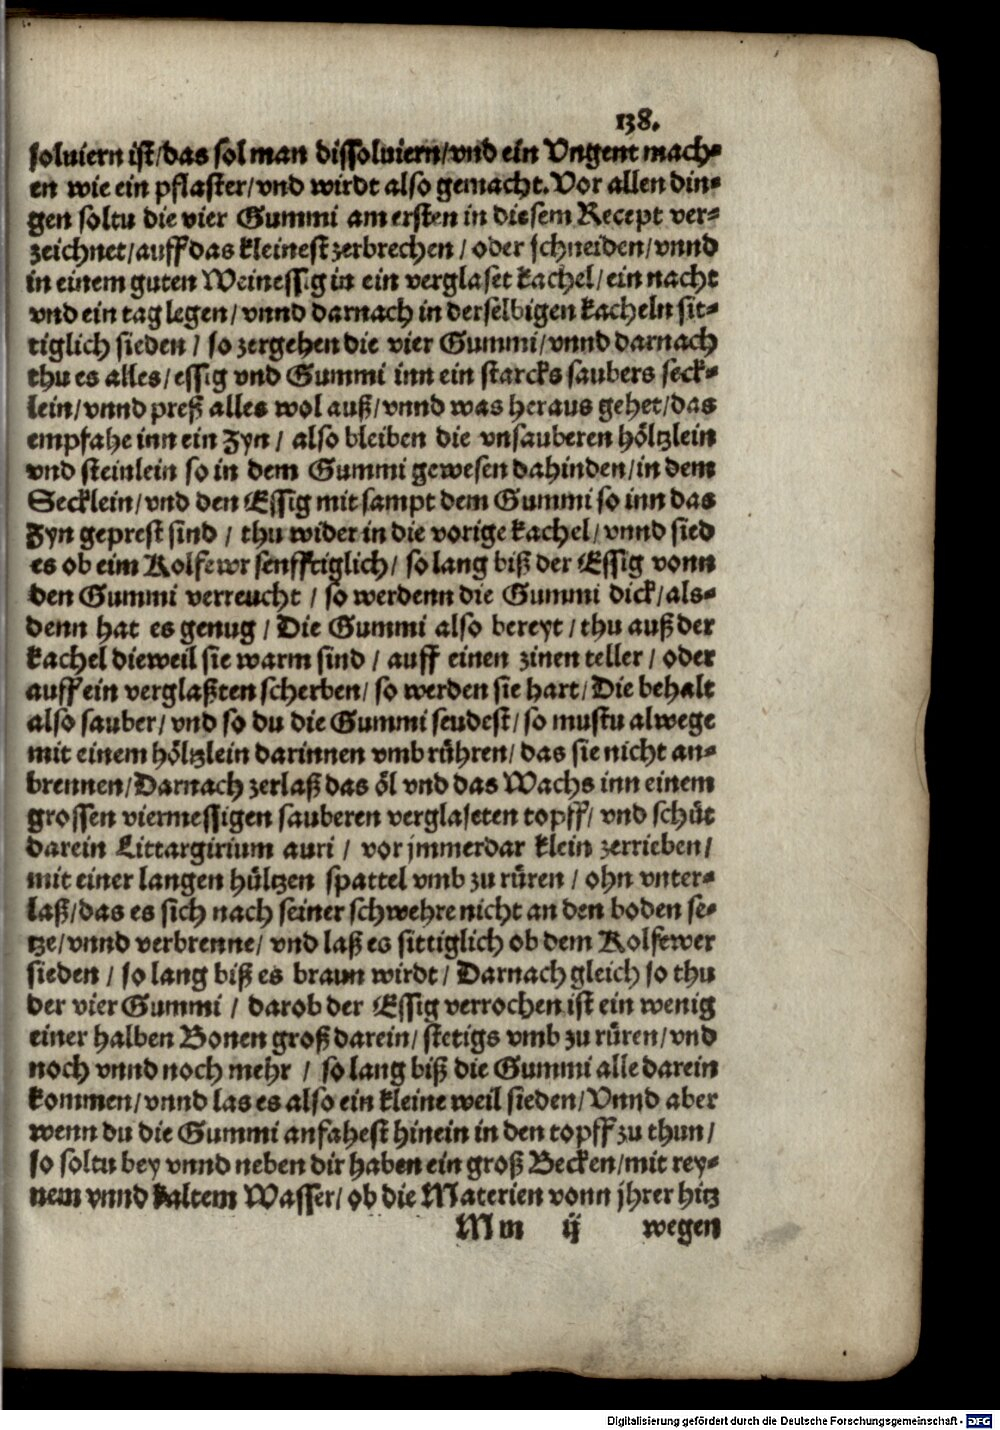 138.
soluiern ist/das sol man dissoluiern/vnd ein Vngent mach-
en wie ein pflaster/vnd wirdt also gemacht. Vor allen din-
gen soltu die vier Gummi am ersten in diesem Recept ver-
zeichnet/auff das kleinest zerbrechen / oder schneiden/vnnd
in einem guten Weinessig in ein verglaset kachel/ein nacht
vnd ein tag legen/vnnd darnach in derselbigen kacheln sit-
tiglich sieden / so zergehen die vier Gummi/vnnd darnach
thu es alles/essig vnd Gummi inn ein starcks saubers seck-
lein/vnnd preß alles wol auß/vnnd was heraus gehet/das
empfahe inn ein Zyn / also bleiben die vnsauberen höltzlein
vnd steinlein so in dem Gummi gewesen dahinden/in dem
Secklein/vnd den Essig mit sampt dem Gummi so inn das
Zyn geprest sind / thu wider in die vorige kachel/vnnd sied
es ob eim Kolfewr senfftiglich/ so lang biß der Essig vonn
den Gummi verreucht / so werdenn die Gummi dick/als-
denn hat es genug / Die Gummi also bereyt / thu auß der
kachel dieweil sie warm sind / auff einen zinen teller / oder
auff ein verglaßten scherben/ so werden sie hart/Die behalt
also sauber/vnd so du die Gummi seudest/so mustu alwege
mit einem höltzlein darinnen vmb rühren/das sie nicht an-
brennen/Darnach zerlaß das öl vnd das Wachs inn einem
grossen viermessigen sauberen verglaseten topff/ vnd schüt
darein Littargirium auri / vor jmmerdar klein zerrieben/
mit einer langen hültzen spattel vmb zu rüren / ohn vnter-
laß/das es sich nach seiner schwehre nicht an den boden se-
tze/vnnd verbrenne/ vnd laß es sittiglich ob dem Kolfewer
sieden / so lang biß es braun wirdt / Darnach gleich so thu
der vier Gummi / darob der Essig verrochen ist ein wenig
einer halben Bonen groß darein/ stetigs vmb zu rüren/vnd
noch vnnd noch mehr / so lang biß die Gummi alle darein
kommen/vnnd las es also ein kleine weil sieden/Vnnd aber
wenn du die Gummi anfahest hinein in den topff zu thun/
so soltu bey vnnd neben dir haben ein groß Becken/mit rey-
nem vnnd kaltem Wasser/ob die Materien vonn jhrer hitz
Mm ij wegen
Digitalisierung gefördert durch die Deutsche Forschungsgemeinschaft - DFG